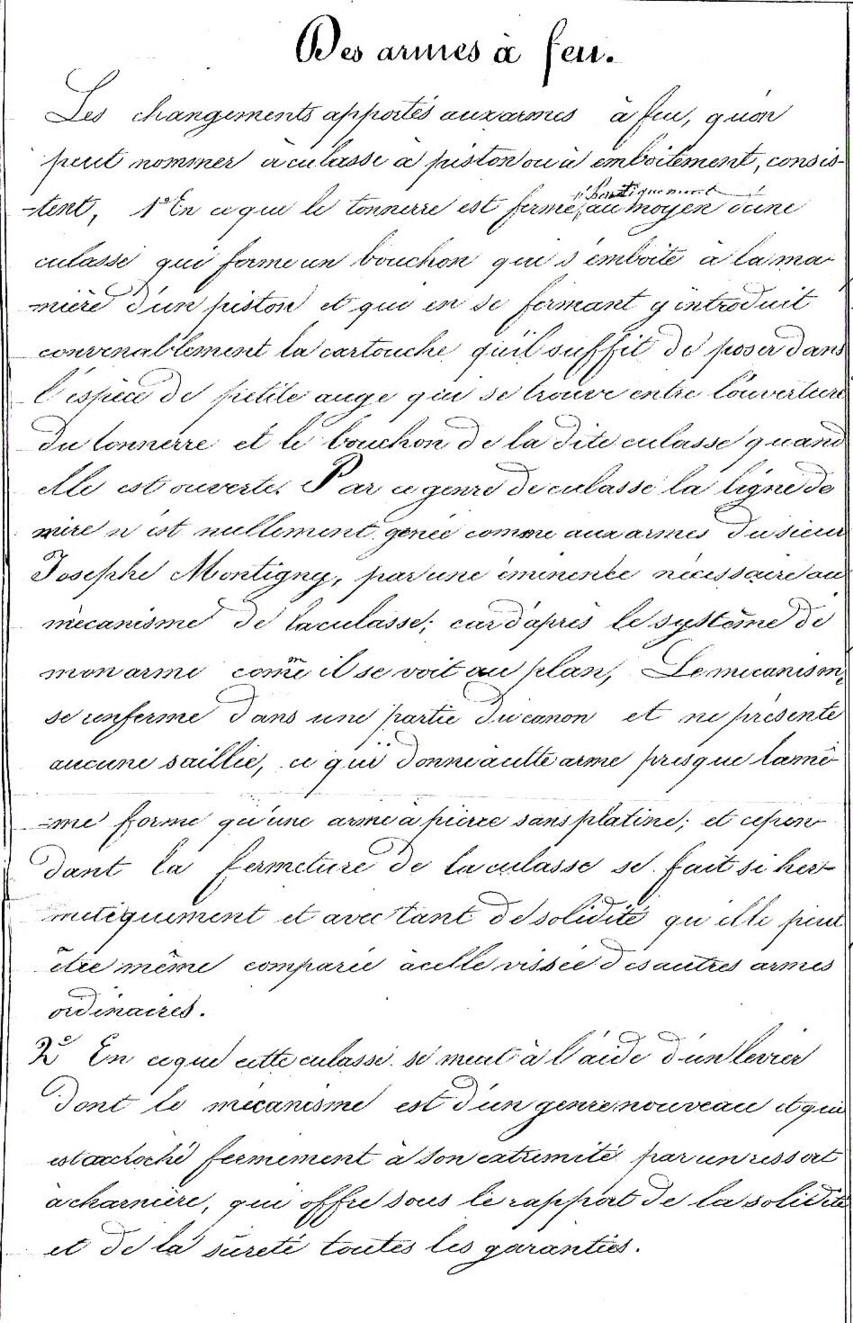 Des armes à feu.
Les changements apportés aux armes à feu, qu'on
peut nommer à culasse à piston ou à emboîtement, consis-
-tent, 1º En ce que le tonnerre est fermé, hermétiquement au moyen d'une
culasse qui forme un bouchon qui s'emboîte à la ma-
-nière d'un piston et qui en se fermant y introduit
convenablement la cartouche qu'il suffit de poser dans
l'espèce de petite auge qui se trouve entre l'ouverture
du tonnerre et le bouchon de la dite culasse quand
elle est ouverte. Par ce genre de culasse la ligne de
mire n'est nullement gênée comme aux armes du sieur
Josephe Montigny, par une éminence nécessaire au
mécanisme de la culasse; car d'après le système de
mon arme comme il se voit au plan, Le mecanisme
se renferme dans une partie du canon et ne présente
aucune saillie, ce qui donne à cette arme presque la mê-
-me forme qu'une arme à pierre sans platine; et cepen-
dant la fermeture de la culasse se fait si her-
métiquement et avec tant de solidité qu'elle peut
être même comparée à celle vissée des autres armes
ordinaires.
2º En ce que cette culasse se meut à l'aide d'un levier
dont le mécanisme est d'un genre nouveau et qui
est accroché fermement à son extremité par un ressort
à charnière, qui offre sous le rapport de la solidité
et de la sûreté toutes les garanties.